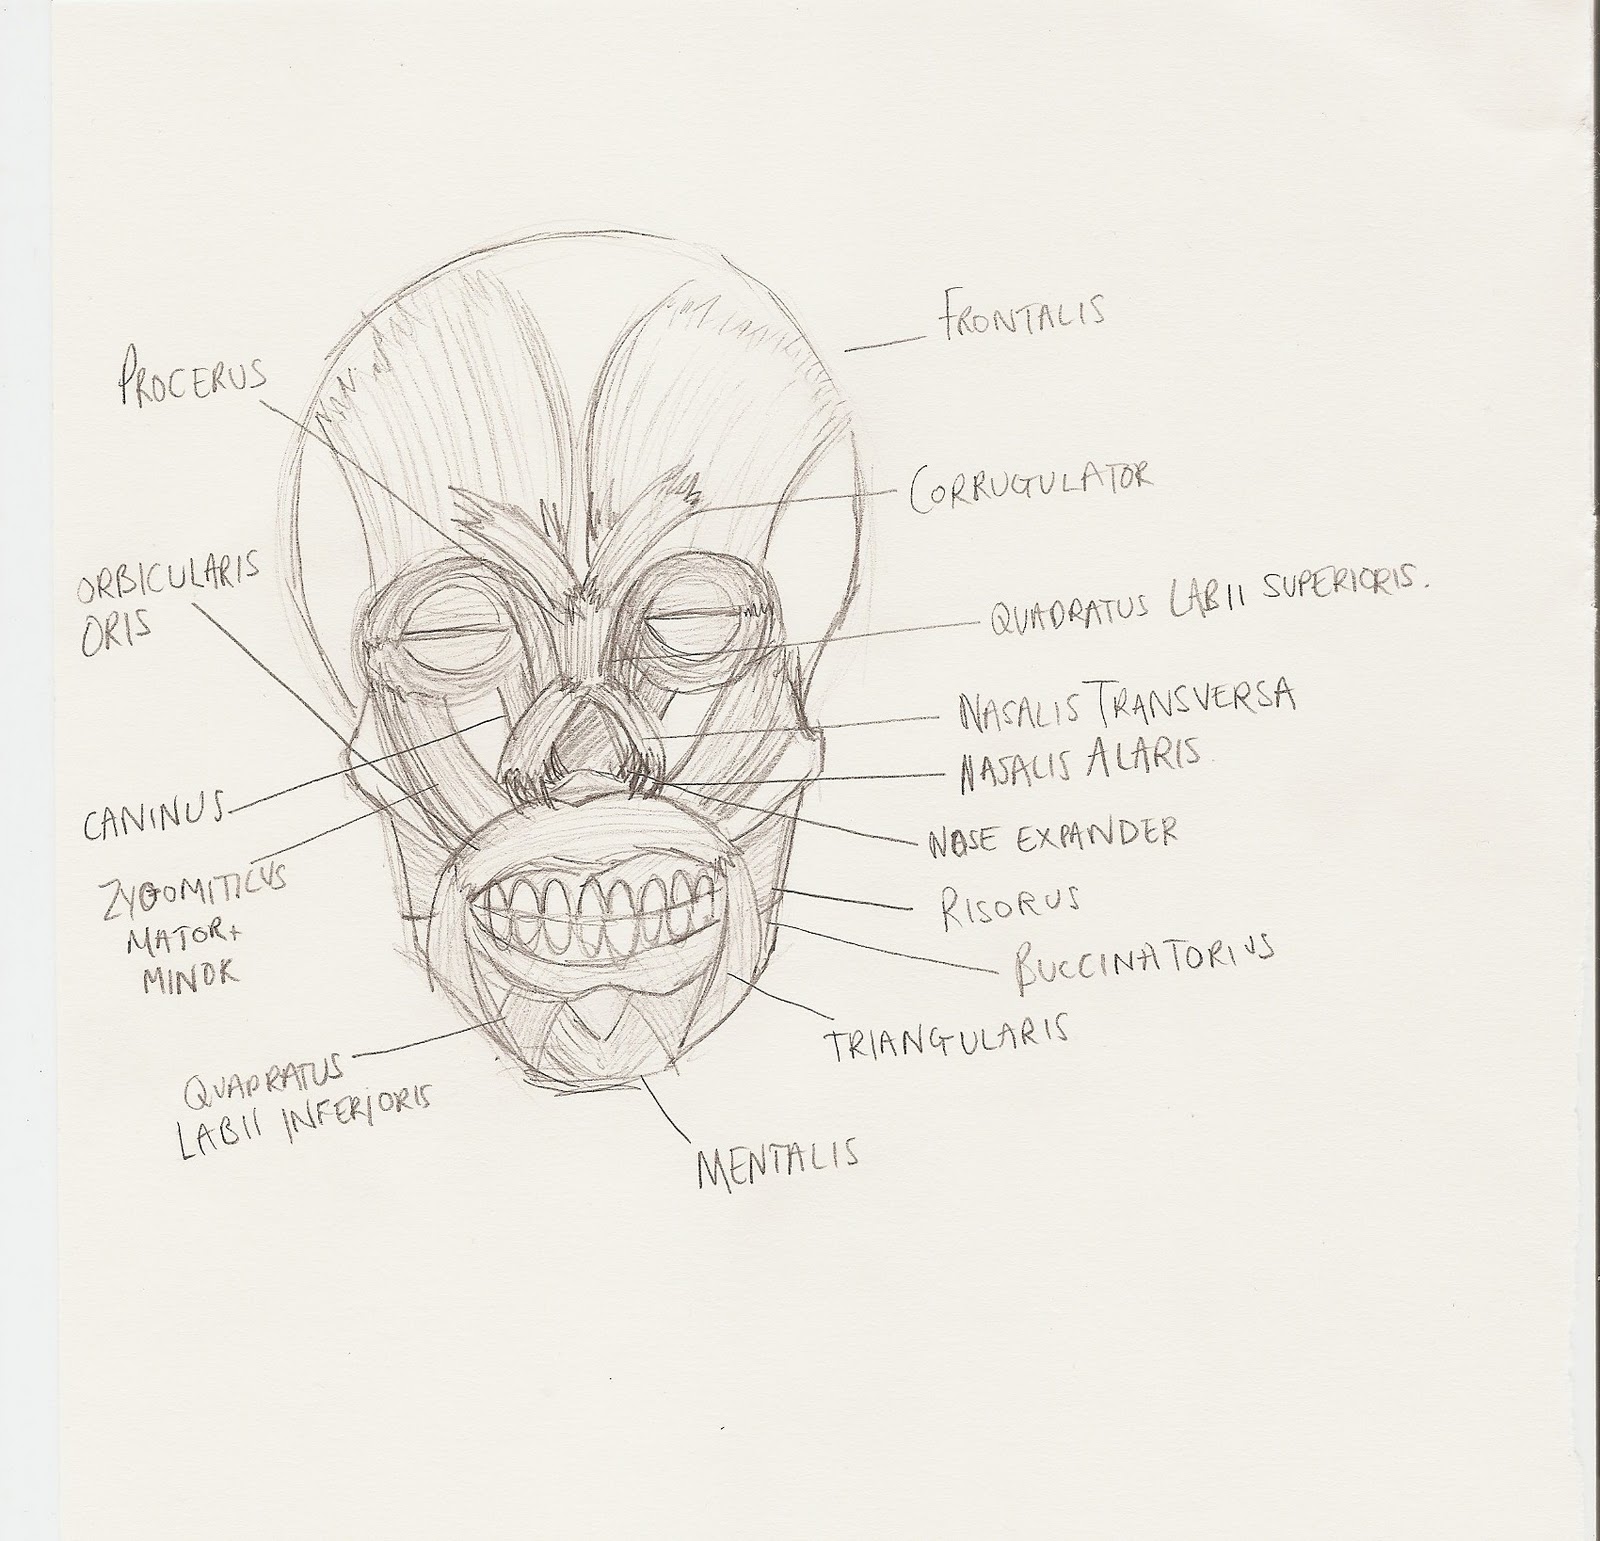 FRONTALIS
PROCERUS
CORRUGULATOR
ORBICULARIS
ORIS
QUADRATUS LABII SUPERIORIS.
NASALIS TRANSVERSA
NASALIS ALARIS
CANINUS
NOSE EXPANDER
ZYGOMITICUS
MATOR+
MINOR
RISORUS
BUCCINATORIUS
TRIANGULARIS
QUADRATUS
LABII INFERIORIS
MENTALIS